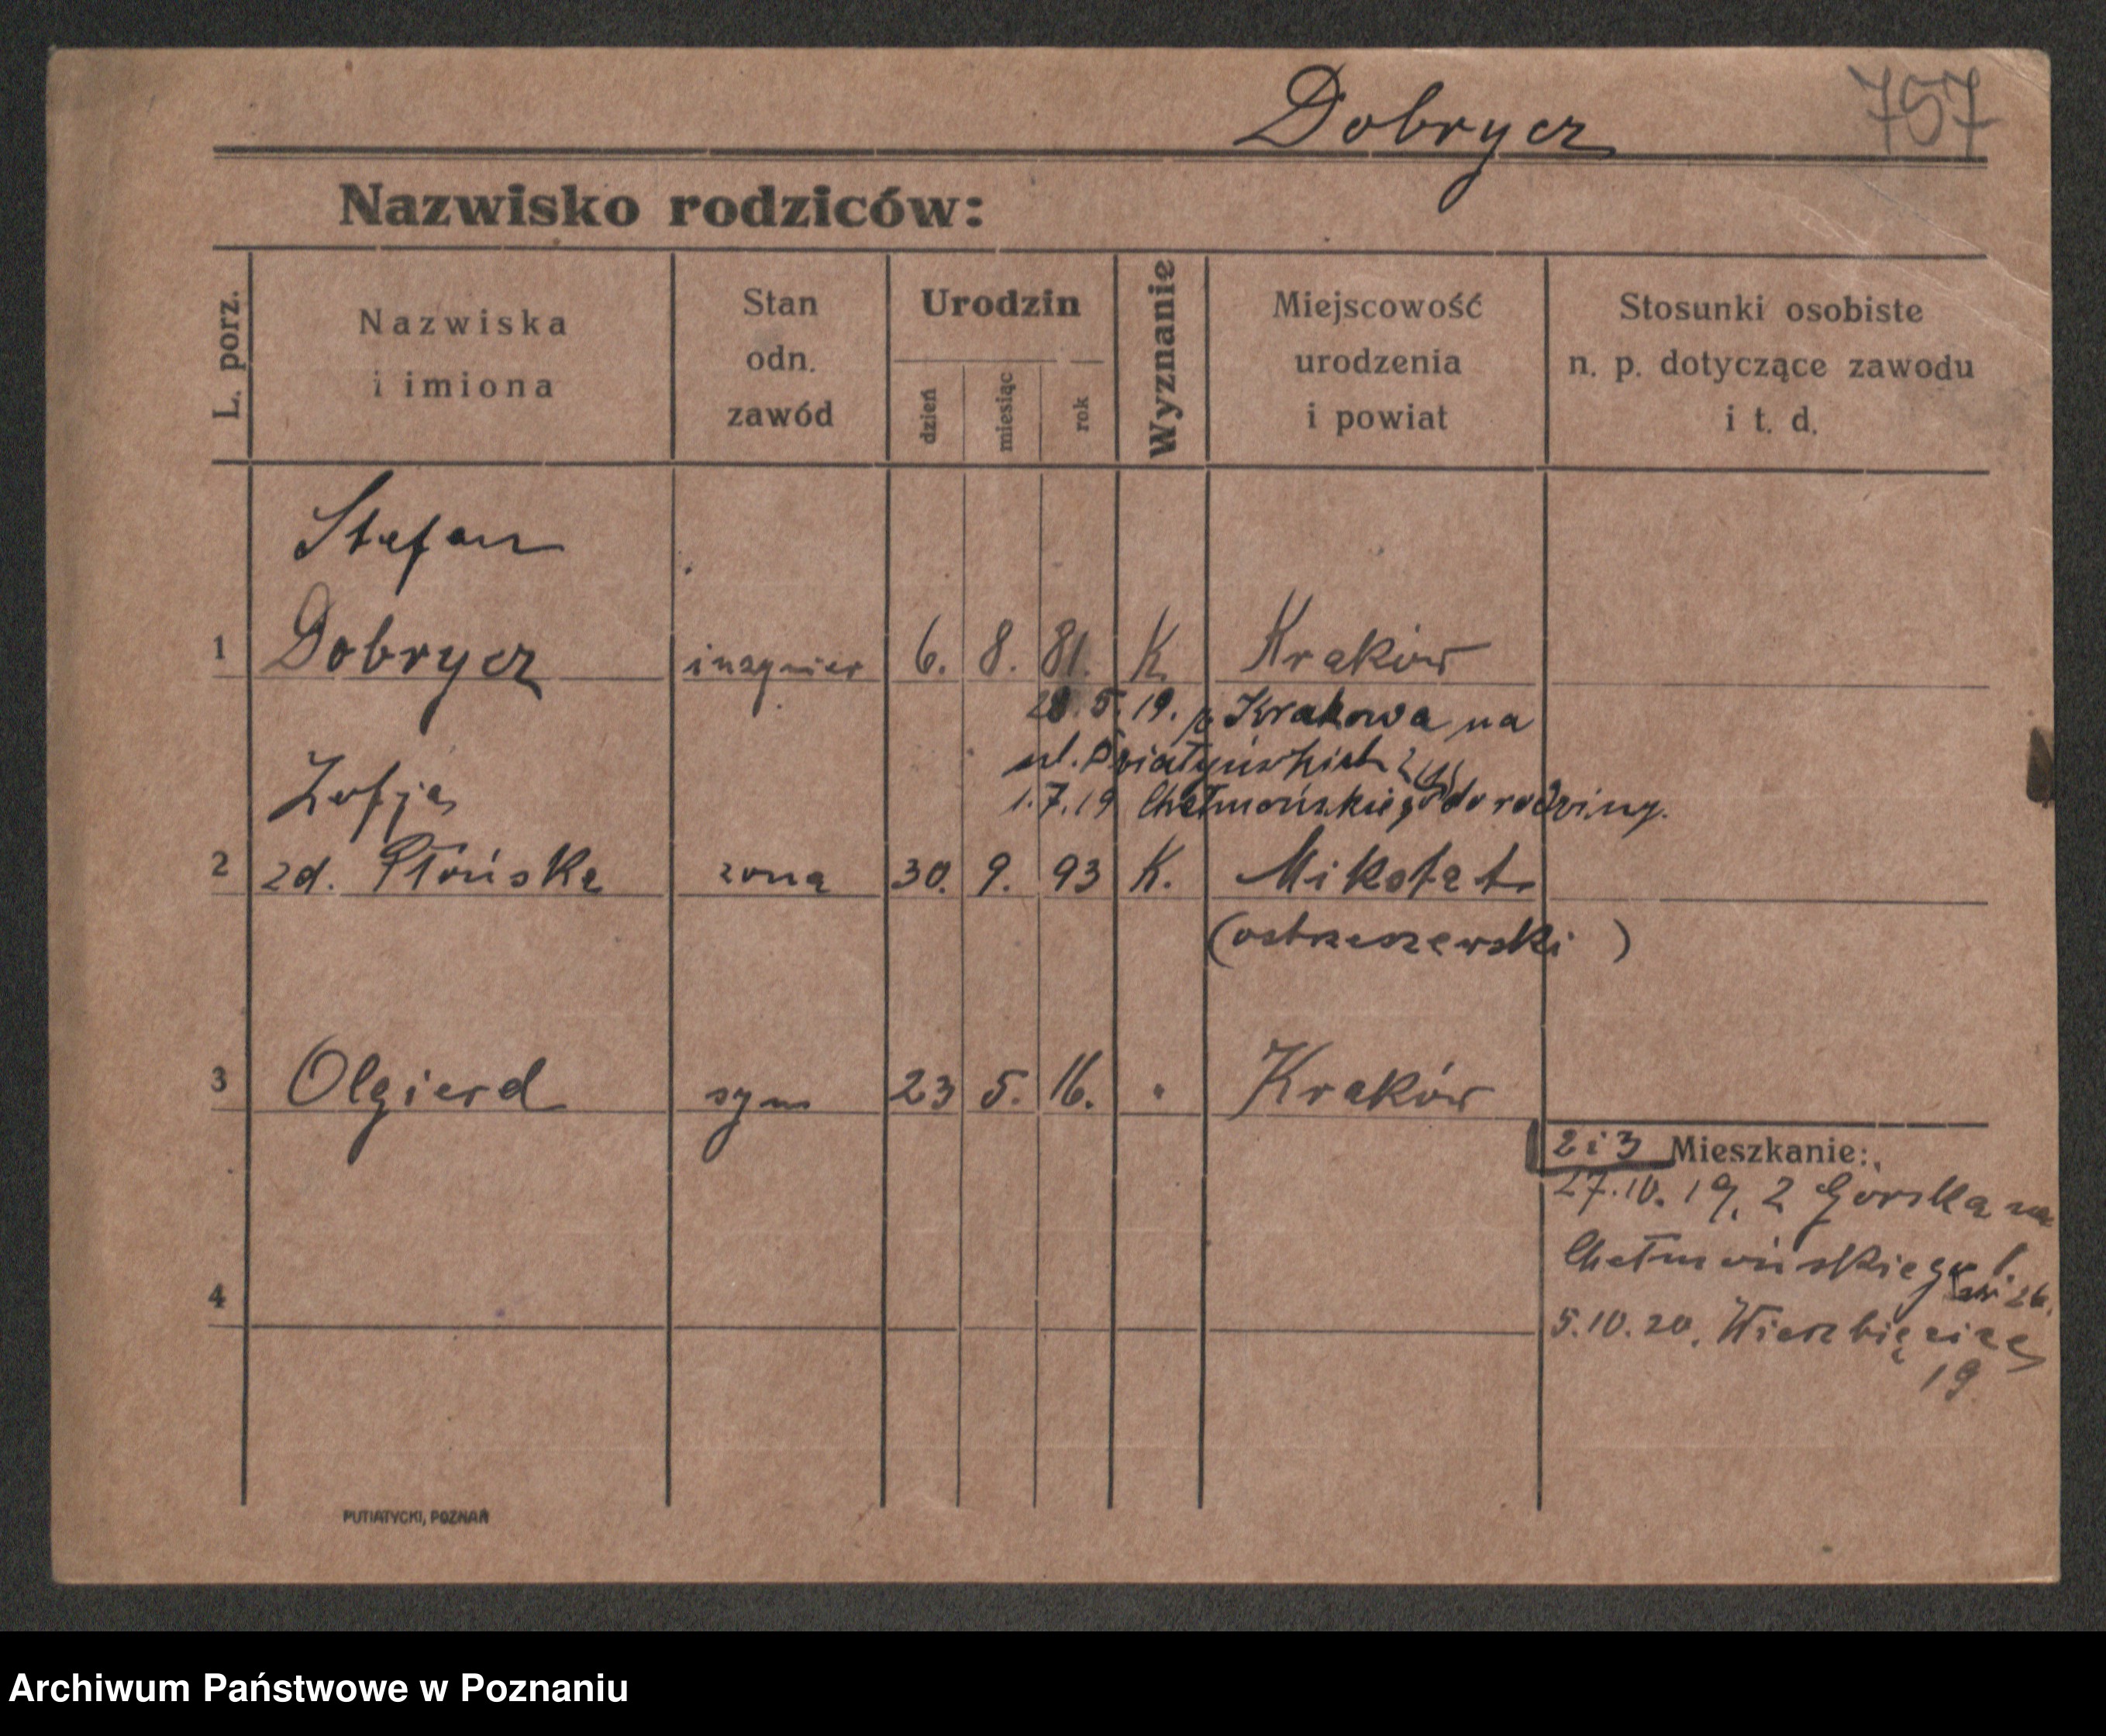 Dobrycz 757
Nazwisko rodziców:
L. porz.
Nazwiska
i imiona
Stan
odn.
zawód
Urodzin
dzień
miesiąc
rok
Wyznanie
Miejscowość
urodzenia
i powiat
Stosunki osobiste
n. p. dotyczące zawodu
i t. d.
Stefan
1 Dobrycz inzynier 6. 8. 81. K. Kraków
28.5.19. z Krakowa na
ul.
1.7.19 Chełmońskiego do rodziny.
Zofja
2 zd. Płońska zona 30. 9. 93 K.
(ostrzeszewski )
3 Olgierd syn 23 5. 16. " Kraków
2 i 3 Mieszkanie:
27.10.19. z Gorska na
Chełmońskiego
4
5.10.20. Wierzbięcice
19
PUTIATYCKI, POZNAŃ
Archiwum Państwowe w Poznaniu